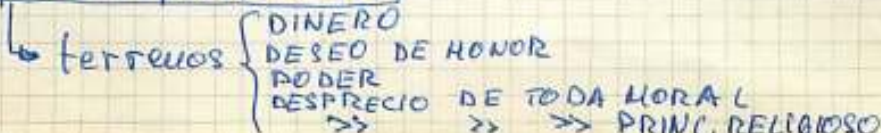 ↳ terrenos { DINERO
DESEO DE HONOR
PODER
DESPRECIO DE TODA MORAL
>> >> >> PRINC. RELIGIOSO